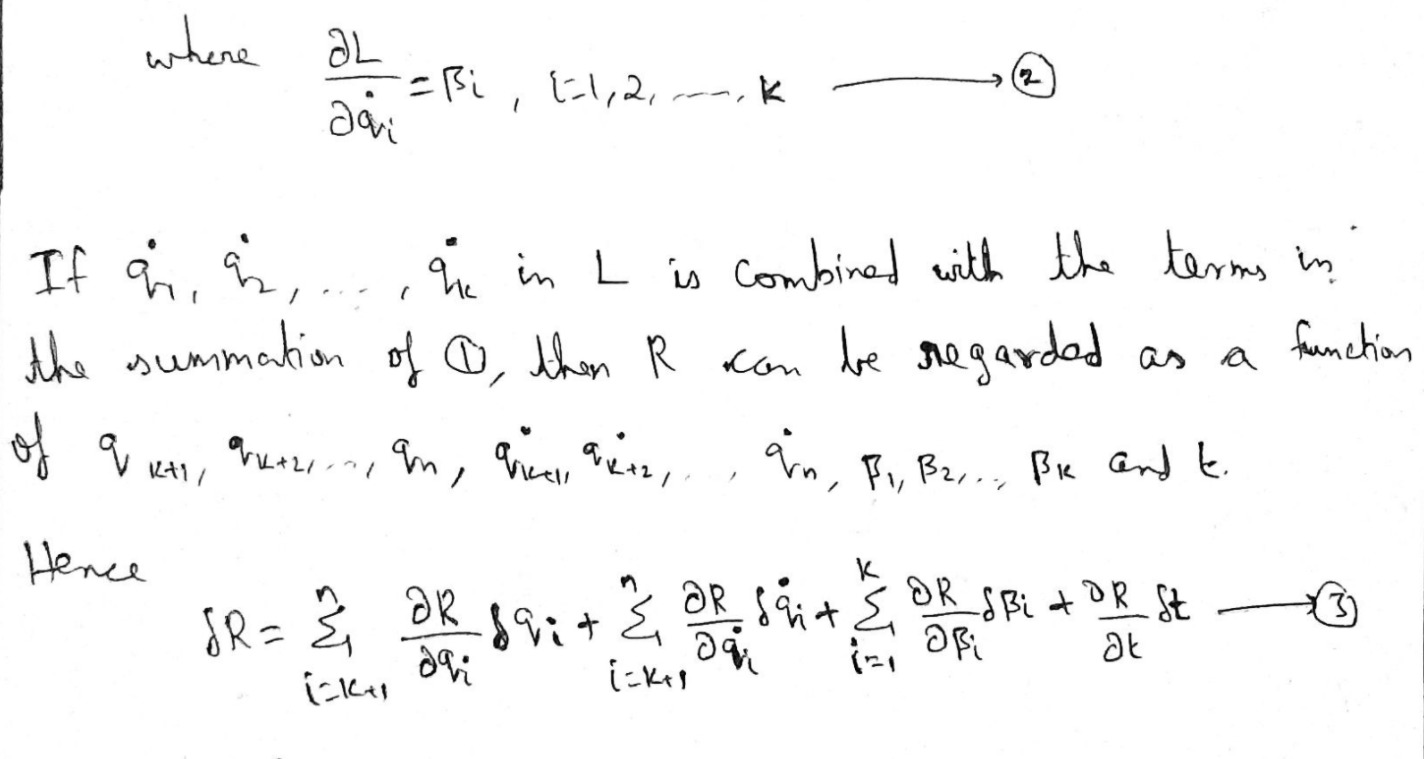 where ∂L/∂q̇i = βi , i=1,2, ----, k ⟶ ②
If q̇1, q̇2, ... , q̇k in L is combined with the terms in
the summation of ①, then R can be regarded as a function
of q k+1, qk+2, ..., qn, q̇k+1, q̇k+2, . . , q̇n, β1, β2, .., βk and t.
Hence
δR = Σ_{i=k+1}^{n} ∂R/∂qi δqi + Σ_{i=k+1}^{n} ∂R/∂q̇i δq̇i + Σ_{i=1}^{k} ∂R/∂βi δβi + ∂R/∂t δt ⟶ ③